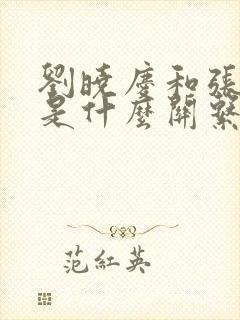 劉曉慶和張
是什麼關繫
范紅英